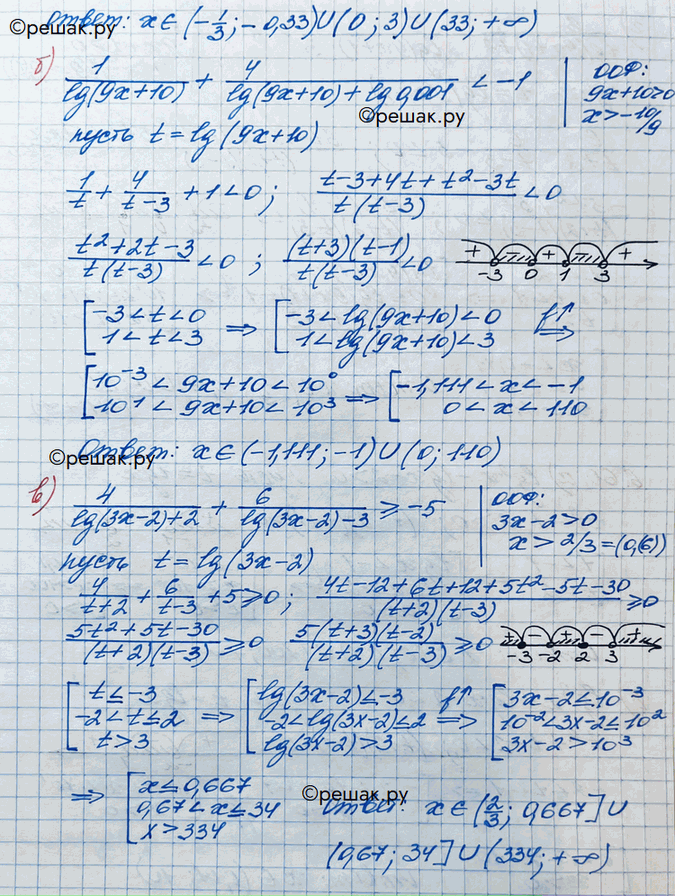 ©решак.ру
Ответ: x∈(-1/3; -0,33)∪(0; 3)∪(33; +∞)
б) 1/lg(9x+10) + 4/(lg(9x+10)+lg 0,001) < -1 | ООФ:
9x+10>0
x>-10/9
©решак.ру
пусть t = lg(9x+10)
1/t + 4/(t-3) + 1 < 0 ; (t-3+4t+t²-3t)/(t(t-3)) < 0
(t²+2t-3)/(t(t-3)) < 0 ; ((t+3)(t-1))/(t(t-3)) < 0 + + +
-3 0 1 3
[ -3<t<0 ⇒ [ -3<lg(9x+10)<0 f↑
1<t<3 1<lg(9x+10)<3 ⇒
[ 10⁻³ < 9x+10 < 10⁰ ⇒ [ -1,111<x<-1
10¹ < 9x+10 < 10³ 0<x<110
Ответ: x∈(-1,111; -1)∪(0; 110)
©решак.ру
в) 4/(lg(3x-2)+2) + 6/(lg(3x-2)-3) ⩾ -5 | ООФ:
3x-2>0
x>2/3=(0,(6))
пусть t = lg(3x-2)
4/(t+2) + 6/(t-3) + 5 ⩾ 0 ; (4t-12+6t+12+5t²-5t-30)/((t+2)(t-3)) ⩾ 0
(5t²+5t-30)/((t+2)(t-3)) ⩾ 0 (5(t+3)(t-2))/((t+2)(t-3)) ⩾ 0 + - + - +
-3 -2 2 3
[ t≤-3 ⇒ [ lg(3x-2)≤-3 f↑ [ 3x-2≤10⁻³
-2<t≤2 -2<lg(3x-2)≤2 ⇒ 10⁻²<3x-2≤10²
t>3 lg(3x-2)>3 3x-2>10³
⇒ [ x≤0,667
0,67<x≤34
x>334
©решак.ру
Ответ: x∈(2/3; 0,667]∪
(0,67; 34]∪(334; +∞)